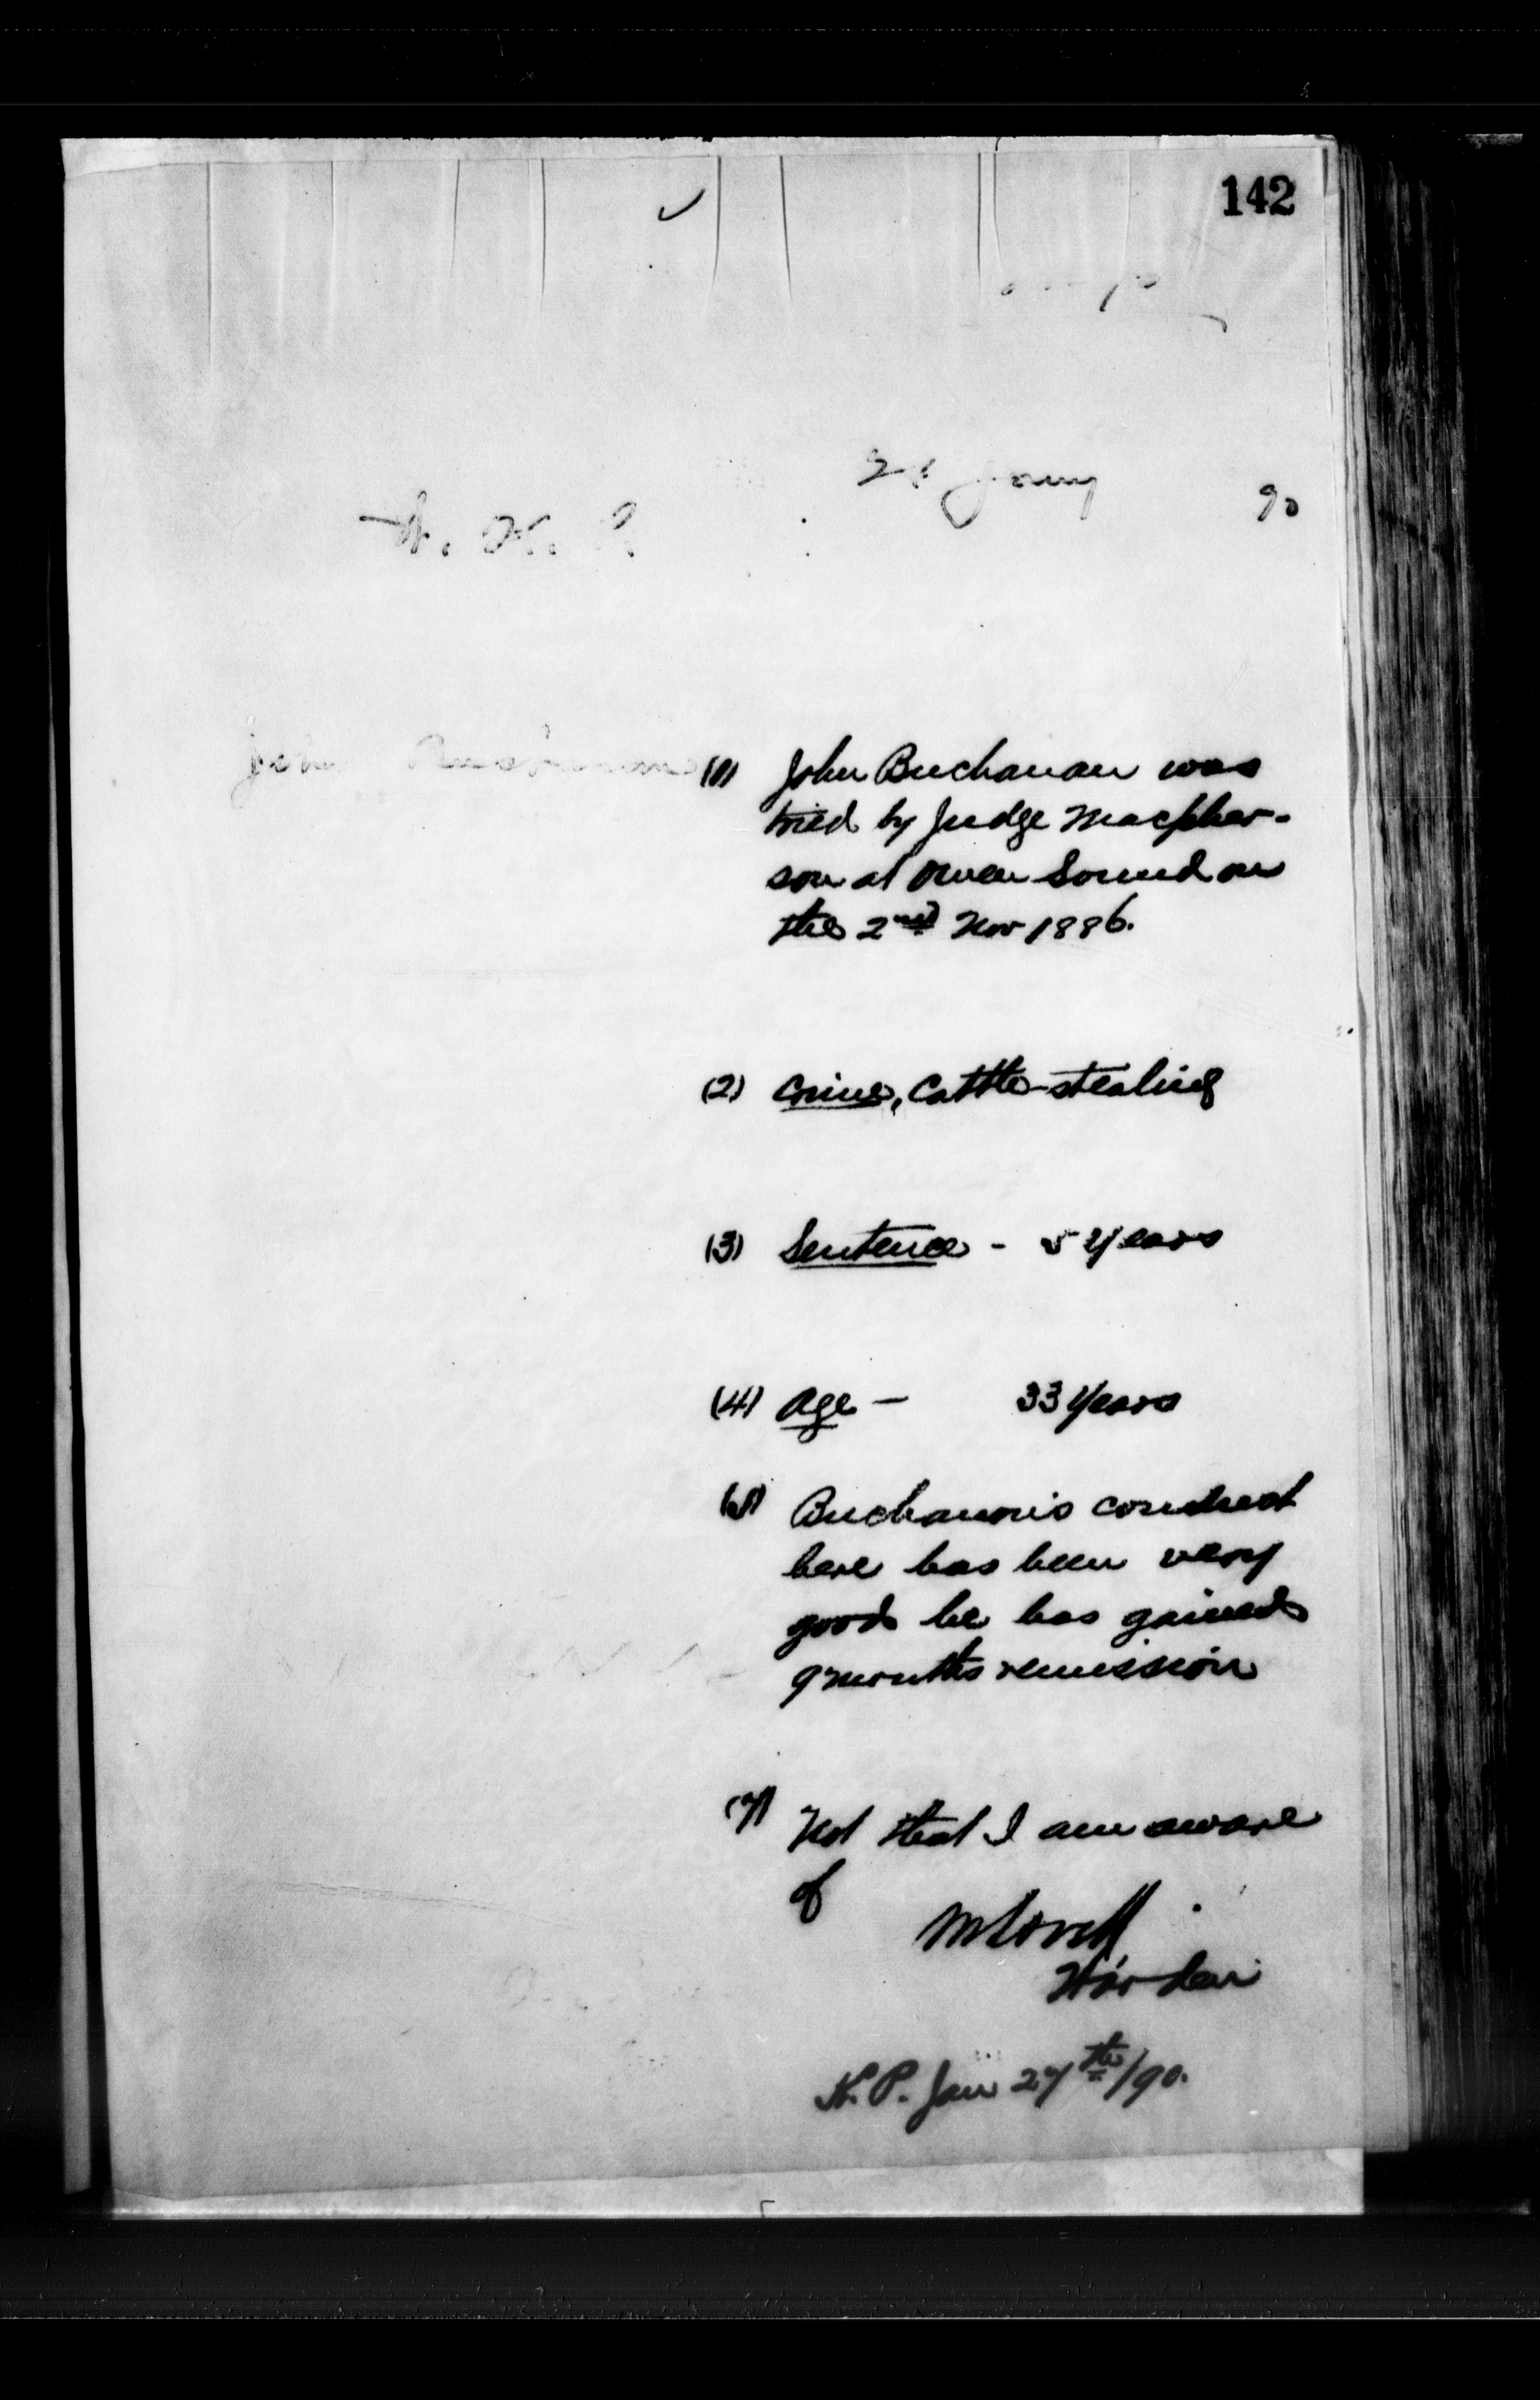 142
90
John Buchanan
(1) John Buchanan was
tried by Judge Macpher-
son at Owen Sound on
the 2nd Nov 1886.
(2) Crime, Cattle-stealing
(3) Sentence - 5 Years
(4) Age - 33 Years
(5) Buchanan's conduct
here has been very
good he has gained
9 months remission
(7) Not that I am aware
of
Warden
K. P. Jan 27th/90.